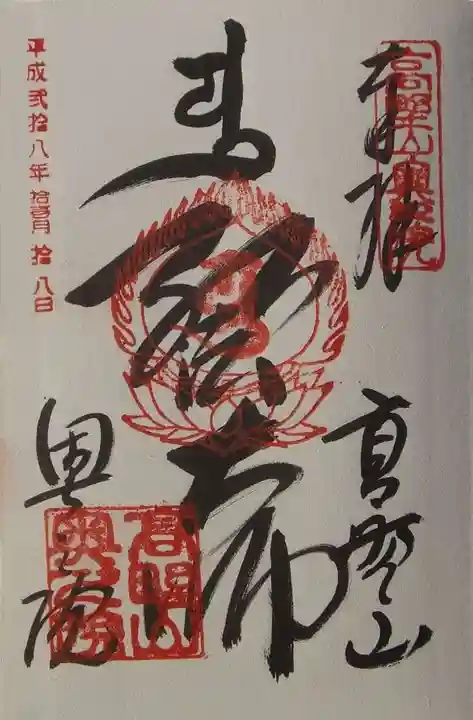 高野山奥之院
高野山
弘法大師
奥之院
高野山
奥之院
平成弐拾八年拾壹月拾八日